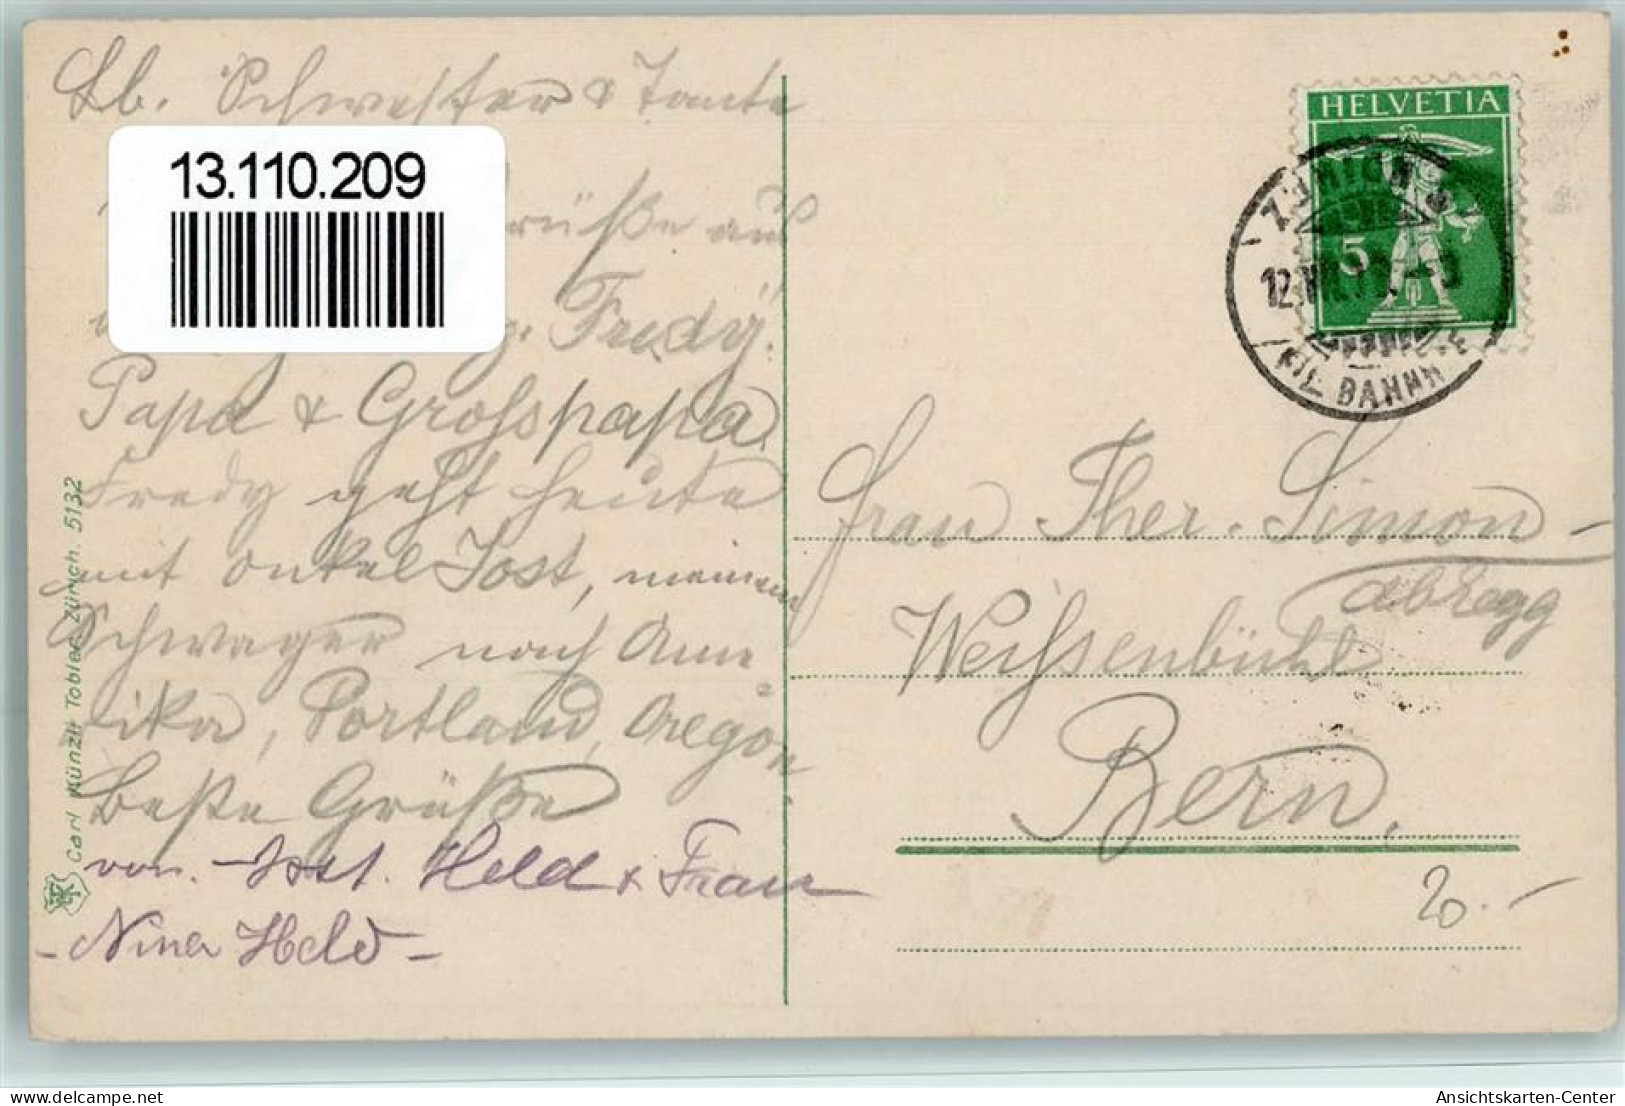 Lb. Schwester & Tante
13.110.209
rüße aus
Fredÿ.
Papa & Grosspapa.
Fredy geht heute
mit Onkel Jost, meinem
Schwager nach Ame
rika, Portland, Oregon
Beste Grüße
von. Jost. Held & Frau
- Nina Held -
Carl Künzli-Tobler, Zürich. 5132
HELVETIA
5
ZÜRICH
12.
BAHNH
Frau Ther. Simon-
abEgg
Weissenbühl
Bern.
20.-
www.delcampe.net
Ansichtskarten-Center